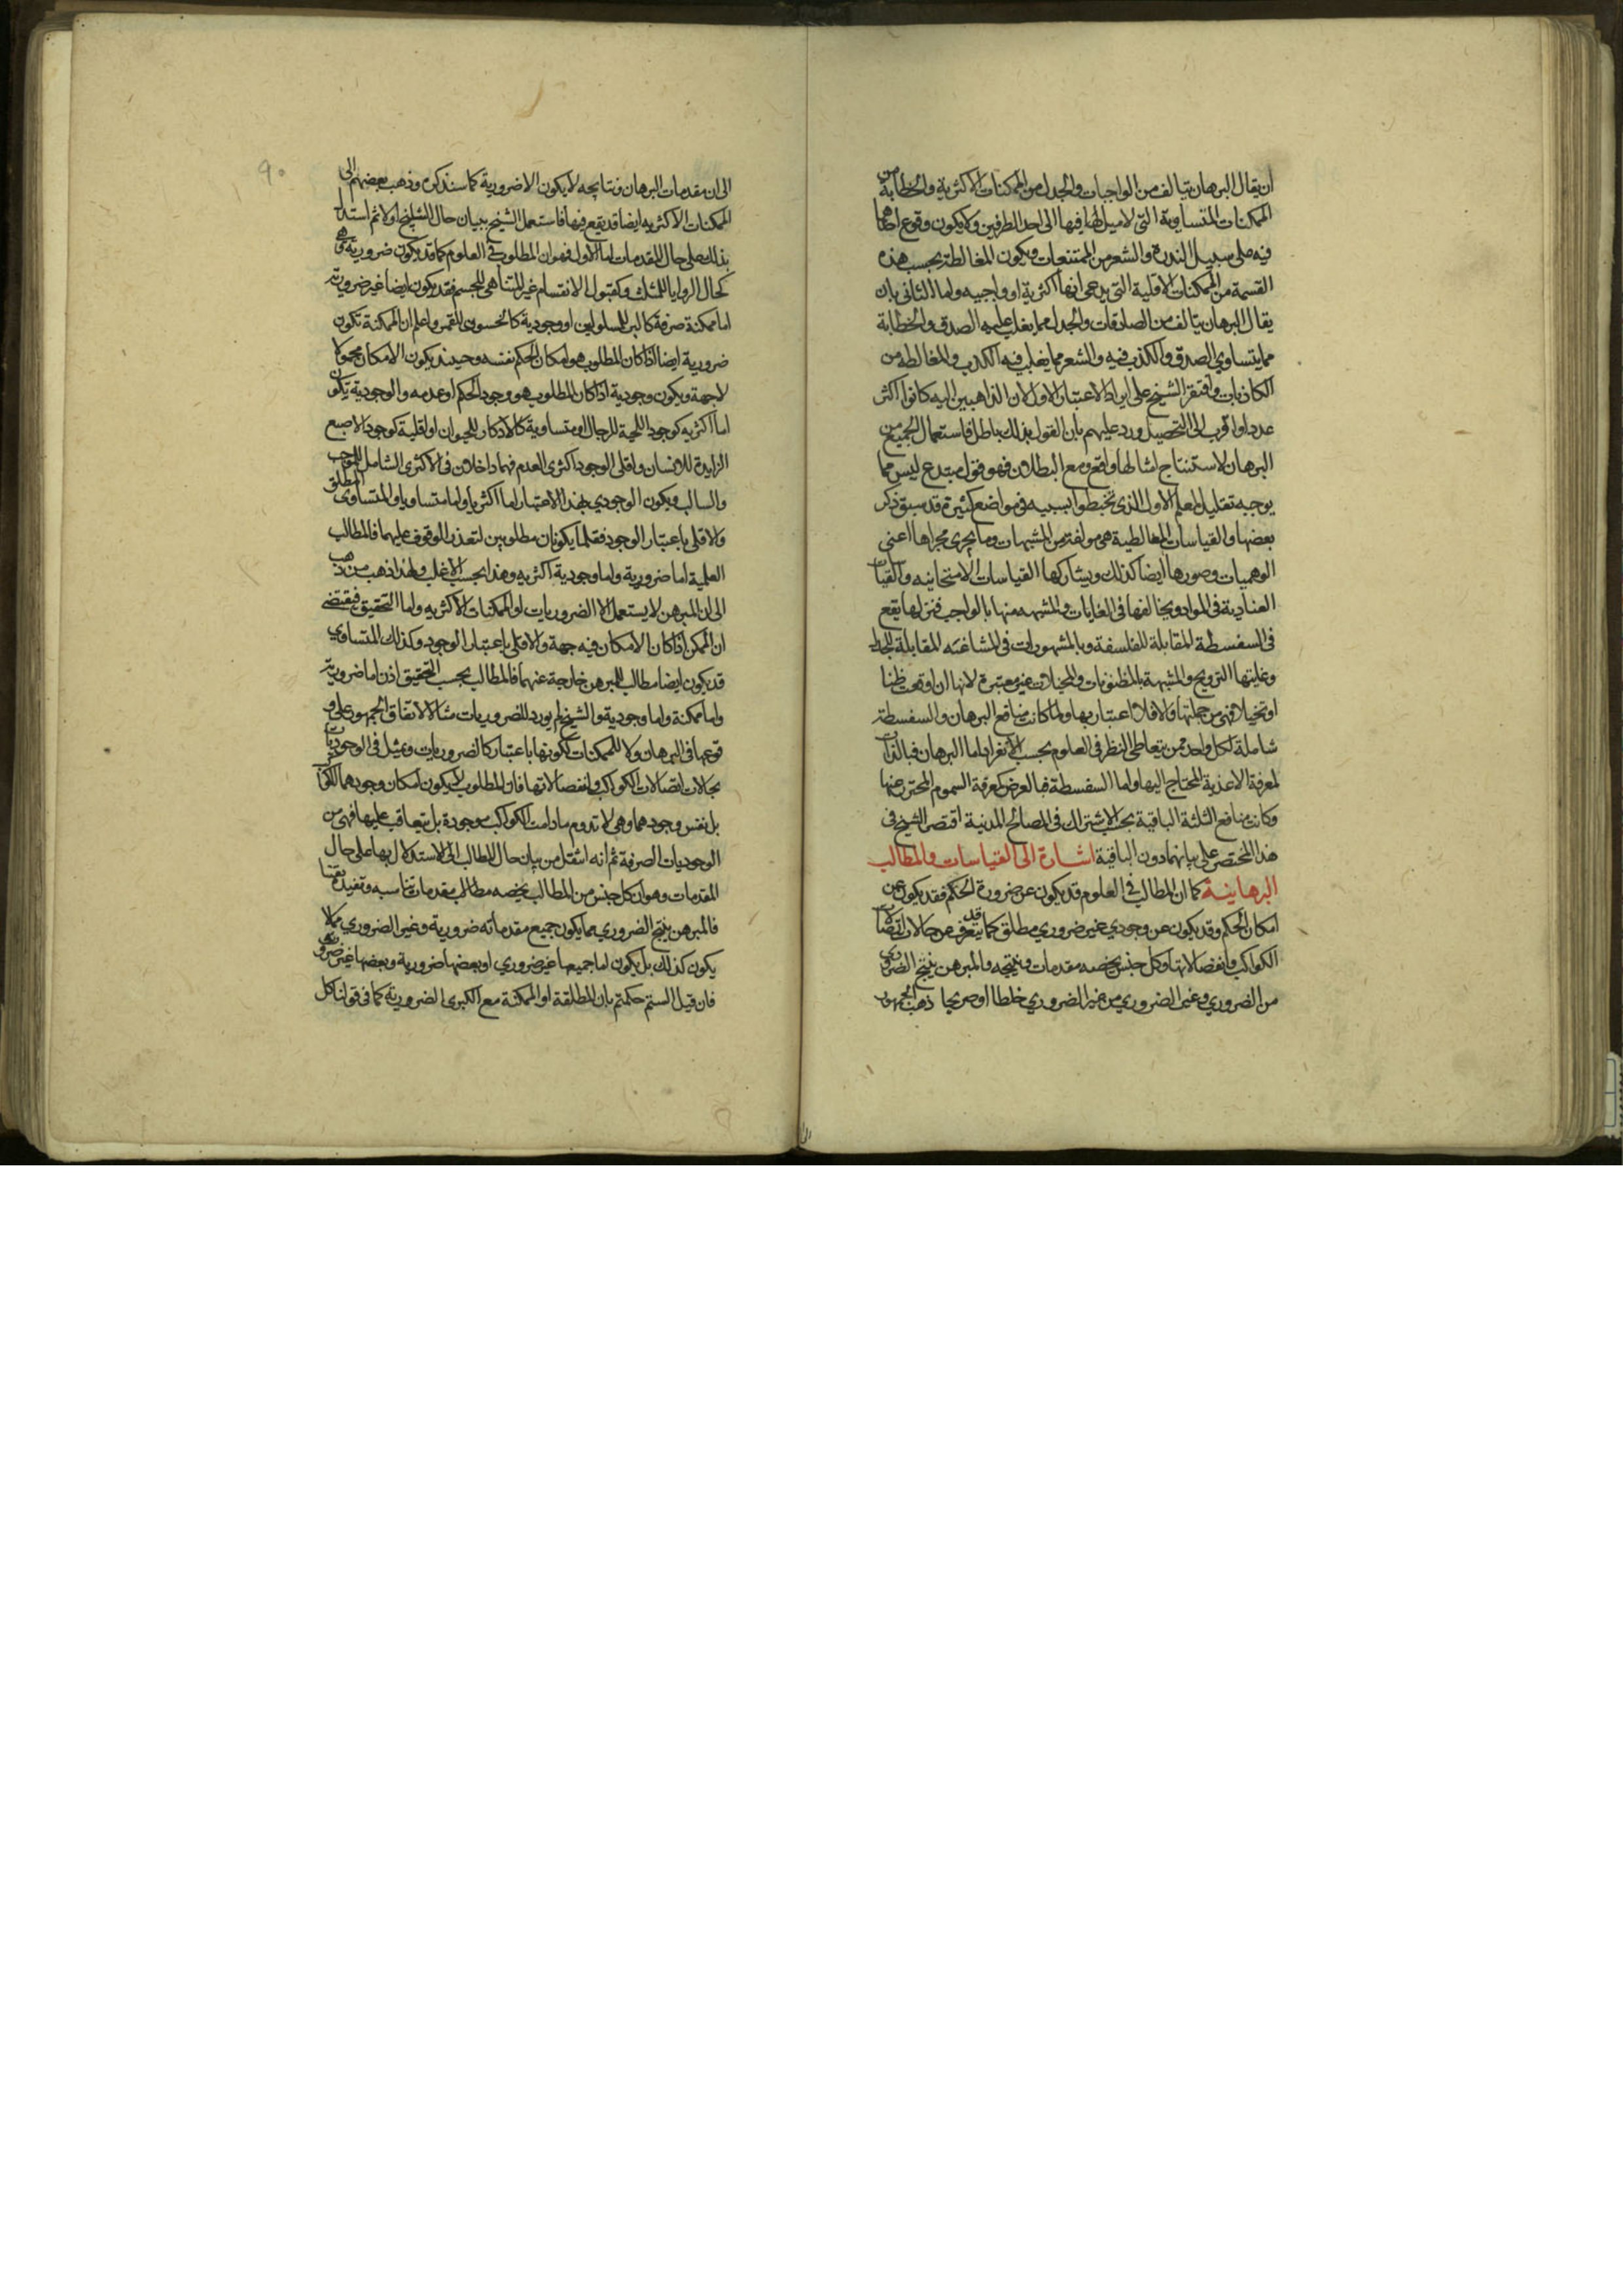 ان يقال البرهان يتالف من الواجبات والجدل من الممكنات الاكثرية والخطابة من
الممكنات المتساوية التي لا ميل لها فيها الى احد الطرفين ولا يكون وقوع احدهما
فيه على سبيل الندرة والشعر من الممتنعات ويكون المغالطة بحسب هذه
القسمة من الممكنات الاقلية التي يدعى انها اكثرية او واجبيه واما الثاني بان
يقال البرهان يتالف من الصادقات والجدل مما يغلب عليه الصدق والخطابة
مما يتساوى الصدق والكذب فيه والشعر مما يغلب فيه الكذب والمغالطه من
الكاذبات واقتصر الشيخ على ايراد الاعتبار الاول لان الذاهبين اليه كانوا اكثر
عددا واقرب الى التحصيل ورد عليهم بان القول بذلك باطل فاستعمال الجميع من
البرهان لاستنتاج امثالها واقع ومع البطلان فهو قول مبتدع ليس مما
يوجبه تقليد المعلم الاول الذي تخبطوا بسببه في مواضع كثيرة قد سبق ذكر
بعضها والقياسات المغالطية هي مولفة من المشبهات وما يجرى مجراها اعنى
الوهميات وصورها ايضا كذلك ويشاركها القياسات الامتحانيه والقياسات
العنادية في المواد ويخالفها في الغايات والمشبهه منها بالواجب قبولها يقع
في السفسطة المقابلة للفلسفة وبالمشهورات في المشاغبه المقابلة للجدل
وغايتها الترويج والمشبهة بالمظنونات والمخيلات غير معتبرة لانها ان اوقعت ظنا
او تخيلا فهي من جملتها والا فلا اعتبار بها ولما كانت منافع البرهان والسفسطة
شاملة لكل واحد ممن يتعاطى النظر في العلوم بحسب الانفراد اما البرهان فبالذات
لمعرفة الاغذية المحتاج اليها واما السفسطة فبالعرض كمعرفة السموم المحترز عنها
وكانت منافع الثلثة الباقية بحسب الاشتراك في المصالح المدنية اقتصر الشيخ في
هذا المختصر على بيانهما دون الباقية اشارة الى القياسات والمطالب
البرهانية كما ان المطالب في العلوم قد يكون عن ضرورة الحكم فقد يكون عن
امكان الحكم وقد يكون عن وجودي غير ضروري مطلق كما قد يتعرف عن حالات اتصالات
الكواكب وانفصالاتها وكل جنس يخصه مقدمات ونتيجه والمبرهن ينتج الضروري
من الضروري وغير الضروري من غير الضروري خلطا او صريحا ذهب الجمهور
الى ان مقدمات البرهان ونتايجه لا يكون الا ضرورية كما سنذكره وذهب بعضهم الى
الممكنات الاكثريه ايضا قد يقع فيها فاستعمل الشيخ ببيان حال النتايج اولا ثم استدل
بذلك على حال المقدمات اما الاول فهو ان المطلوب في العلوم كما قد يكون ضرورية وهي
كحال الزوايا للمثلث وكقبول الانقسام غير المتناهى للجسم فقد يكون ايضا غير ضرورية
اما ممكنة صرفة كالبرء للمسلولين او وجودية كالخسوف للقمر واعلم ان الممكنة تكون
ضرورية ايضا اذا كان المطلوب هو امكان الحكم نفسه وحينئذ يكون الامكان محمولا
لا جهة ويكون وجودية اذا كان المطلوب هو وجود الحكم او عدمه والوجودية يكون
اما اكثريه كوجود اللحية للرجال او متساوية كالاذكار للحيوان او اقلية كوجود الاصبع
الزايدة للانسان واقلى الوجود اكثرى العدم فهما داخلان في الاكثرى الشامل للموجب
والسالب ويكون الوجودي بهذا الاعتبار اما اكثريا واما متساويا والمتساوى المطلق
والاقلى باعتبار الوجود فقلما يكونان مطلوبين لتعذر الوقوف عليهما فالمطالب
العلمية اما ضرورية واما وجودية اكثريه وهذا بحسب الاغلب ولهذا ذهب من ذهب
الى ان المبرهن لا يستعمل الا الضروريات او الممكنات الاكثريه واما التحقيق فيقتضى
ان الممكن اذا كان الامكان فيه جهة والاقلى باعتبار الوجود وكذلك المتساوي
قد يكون ايضا مطالب للمبرهن خارجة عنهما فالمطالب بحسب التحقيق اذن اما ضرورية
واما ممكنة واما وجودية والشيخ لم يورد للضروريات مثالا لاتفاق الجمهور على و
قوعها في البرهان ولا للممكنات لكونها باعتبار كالضروريات ويمثل في الوجوديات
بحالات اتصالات الكواكب وانفصالاتها فان المطلوب لا يكون امكان وجودهما للكواكب
بل نفس وجودهما وهي لا تدوم ما دامت الكواكب موجودة بل يتعاقب عليها فهي من
الوجوديات الصرفة ثم انه انتقل من بيان حال المطالب الى الاستدلال بها على حال
المقدمات وهو ان كل جنس من المطالب يخصه مطالب مقدمات تناسبه وتفيده يقينا
فالمبرهن ينتج الضروري مما يكون جميع مقدماته ضرورية وغير الضروري مما لا
يكون كذلك بل يكون اما جميعها غير ضروري او بعضها ضرورية وبعضها غير ضروري
فان قيل الستم حكمتم بان المطلقة او الممكنة مع الكبرى الضرورية كما في قولنا كل